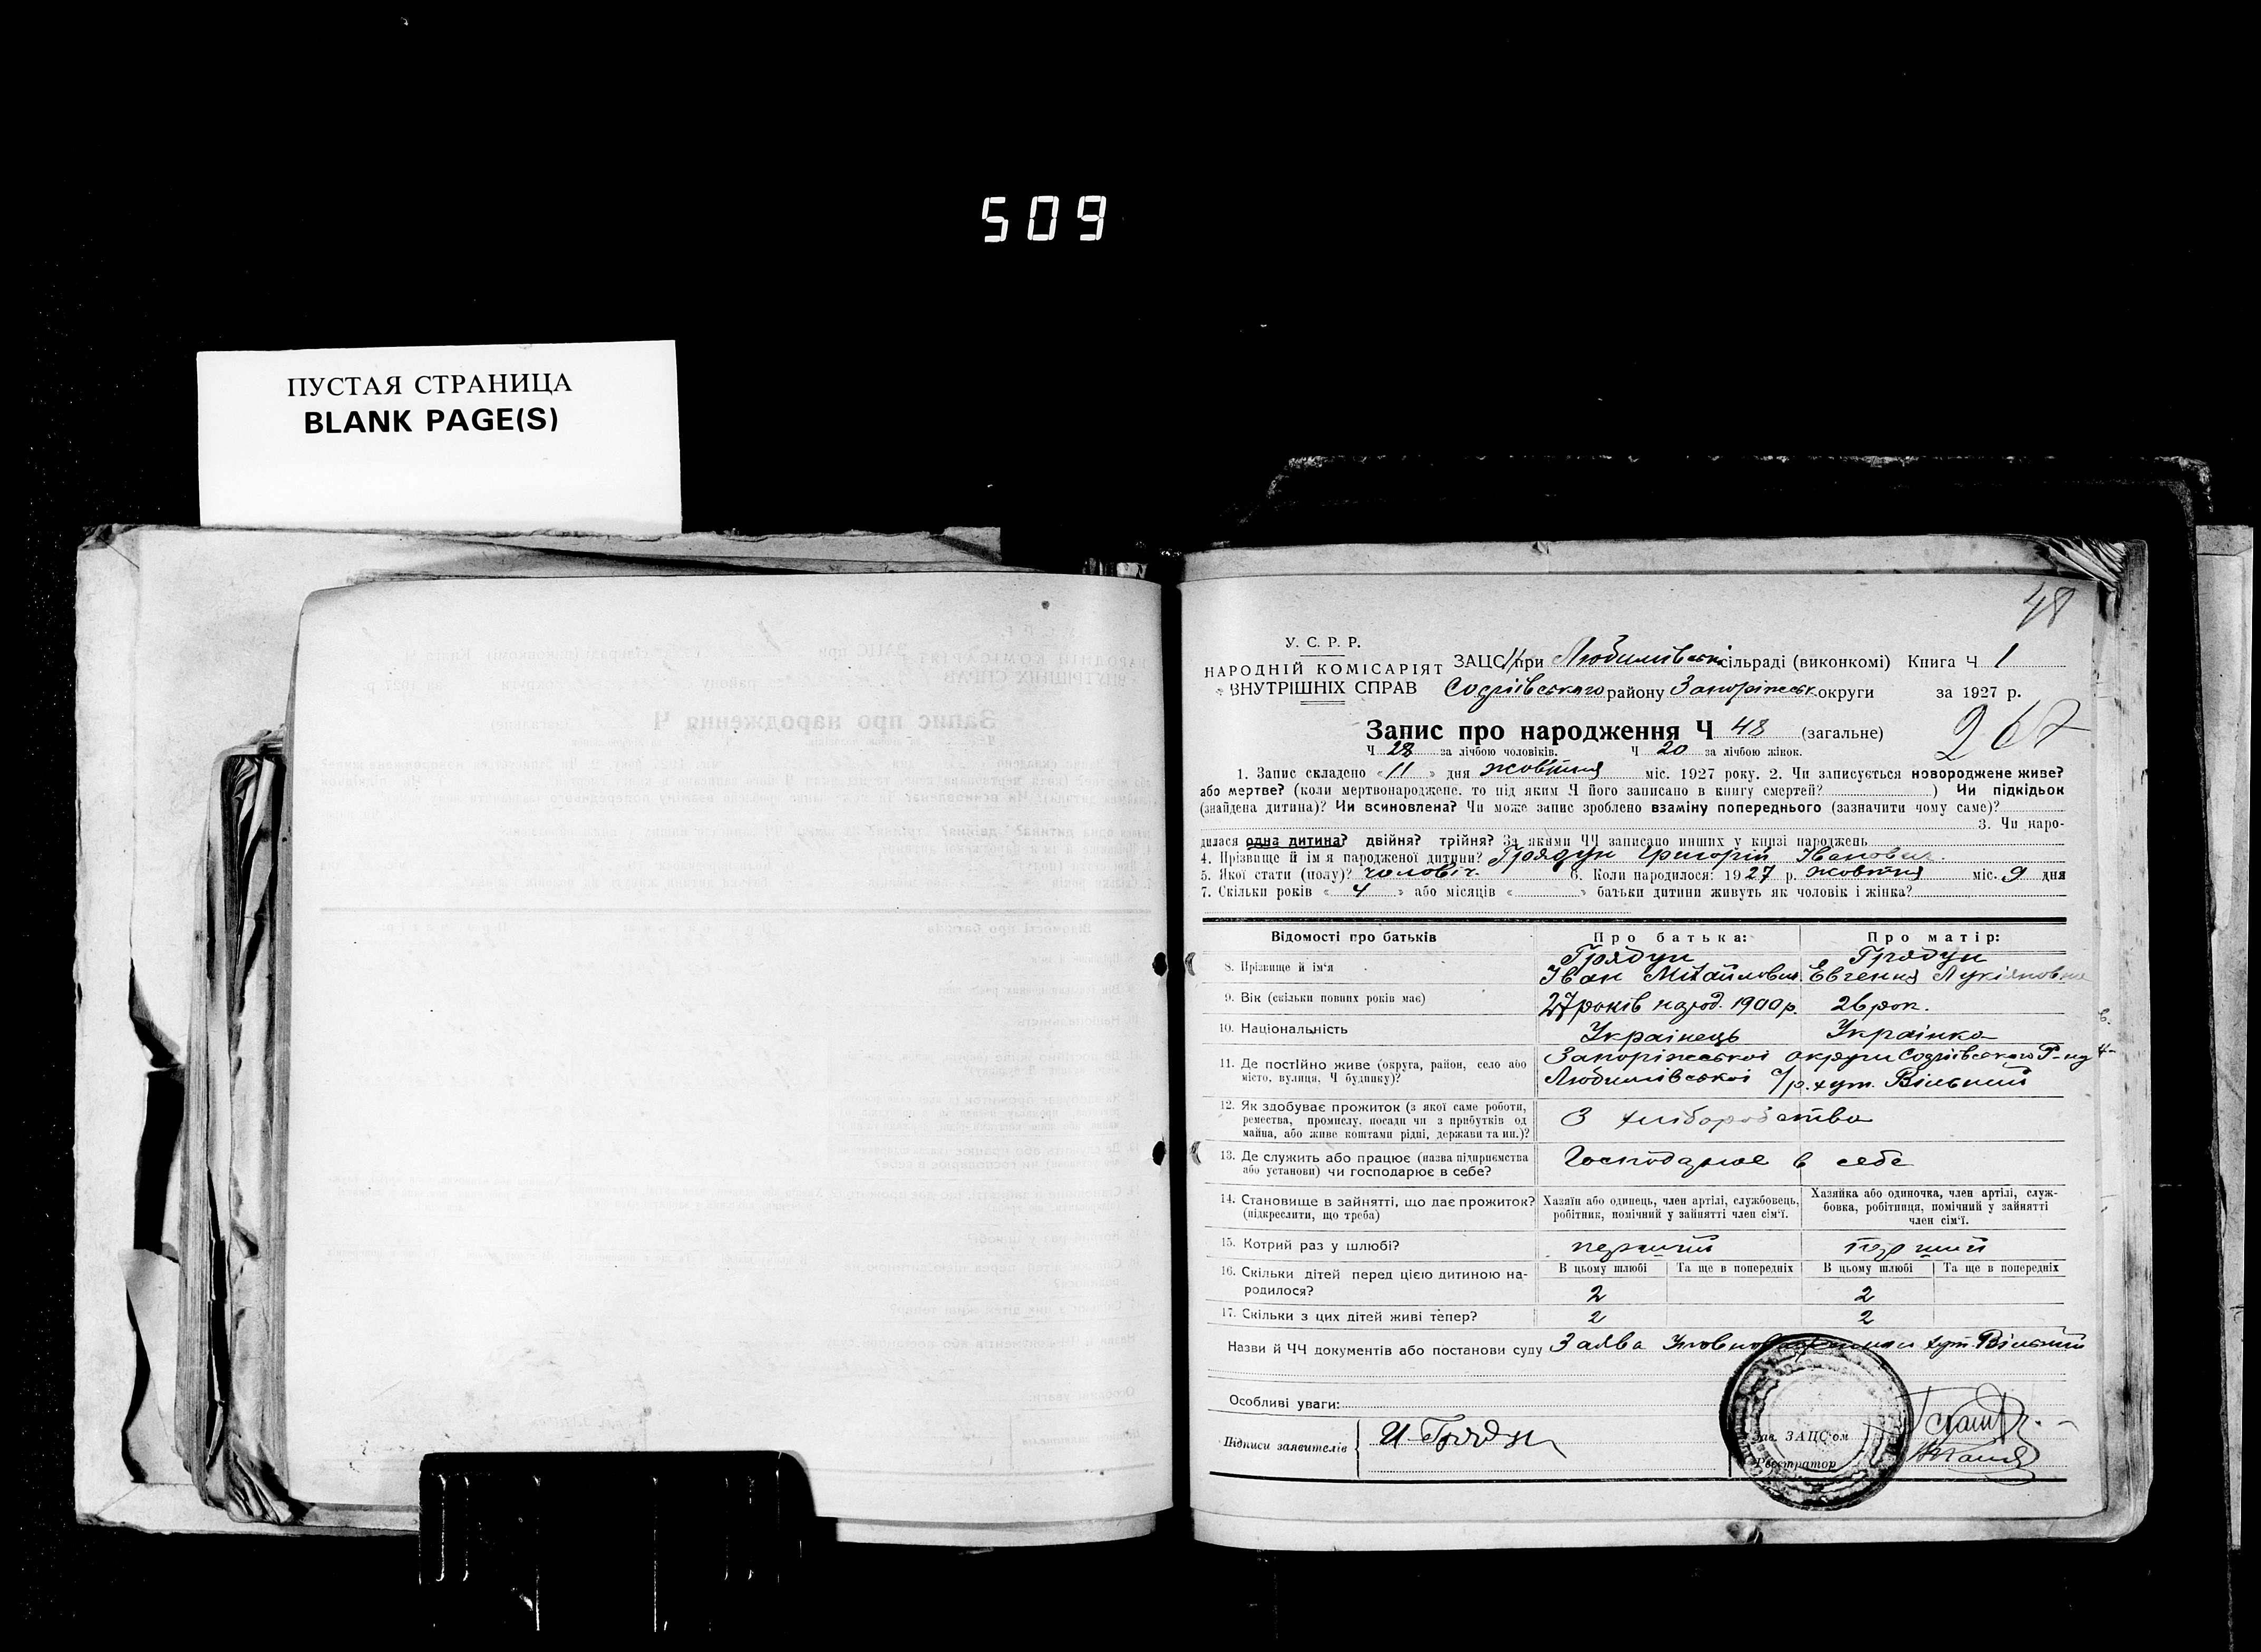 509
ПУСТАЯ СТРАНИЦА
BLANK PAGE(S)
48
У. С. Р. Р.
НАРОДНІЙ КОМІСАРІЯТ
ВНУТРІШНІХ СПРАВ
ЗАЦС при Любимівськ сільраді (виконкомі) Книга Ч 1
району Запоріжськ округи за 1927 р.
Запис про народження Ч 48 (загальне)
267
Ч 28 за лічбою чоловіків. Ч 20 за лічбою жінок.
1. Запис складено « 11 » дня жовтня міс. 1927 року. 2. Чи записується новороджене живе?
або мертве? (коли мертвонароджене, то під яким Ч його записано в книгу смертей? ) Чи підкідьок
(знайдена дитина)? Чи всиновлена? Чи може запис зроблено взаміну попереднього (зазначити чому саме)?
3. Чи наро-
дилася одна дитина? двійня? трійня? За якими ЧЧ записано инших у книзі народжень
4. Прізвище й ім'я народженої дитини? Грядун Григорій Іванович.
5. Якої стати (полу)? чоловіч. 6. Коли народилося: 1927 р. жовтня міс. 9 дня
7. Скільки років « 4 » або місяців « » батьки дитини живуть як чоловік і жінка?
Відомості про батьків Про батька: Про матір:
8. Прізвище й ім'я Грядун Грядун
Іван Міхайлович. Евгения Лукіяновна
9. Вік (скільки повних років має) 27 років народ. 1900 р. 26 рок.
10. Національність Українець Українка
11. Де постійно живе (округа, район, село або місто, вулиця, Ч будинку)? Запоріжської округи Р-ну
Любимівської с/р. хут. Вільний
12. Як здобуває прожиток (з якої саме роботи,
ремества, промислу, посади чи з прибутків од З хліборобства
майна, або живе коштами рідні, держави та ин.)?
13. Де служить або працює (назва підприємства Господарює в себе
або установи) чи господарює в себе?
14. Становище в зайнятті, що дає прожиток? Хазяїн або одинець, член артілі, службовець, Хазяйка або одиночка, член артілі, служ-
(підкреслити, що треба) робітник, помічний у зайнятті член сім'ї. бовка, робітниця, помічний у зайнятті
член сім'ї.
15. Котрий раз у шлюбі? перший перший
16. Скільки дітей перед цією дитиною на- В цьому шлюбі Та ще в попередніх В цьому шлюбі Та ще в попередніх
родилося? 2 2
17. Скільки з цих дітей живі тепер? 2 2
Назви й ЧЧ документів або постанови суду Заява хут. Вільний
Особливі уваги:
Підписи заявителів И Грядун
Зав. ЗАЦС'ом
Реєстратор